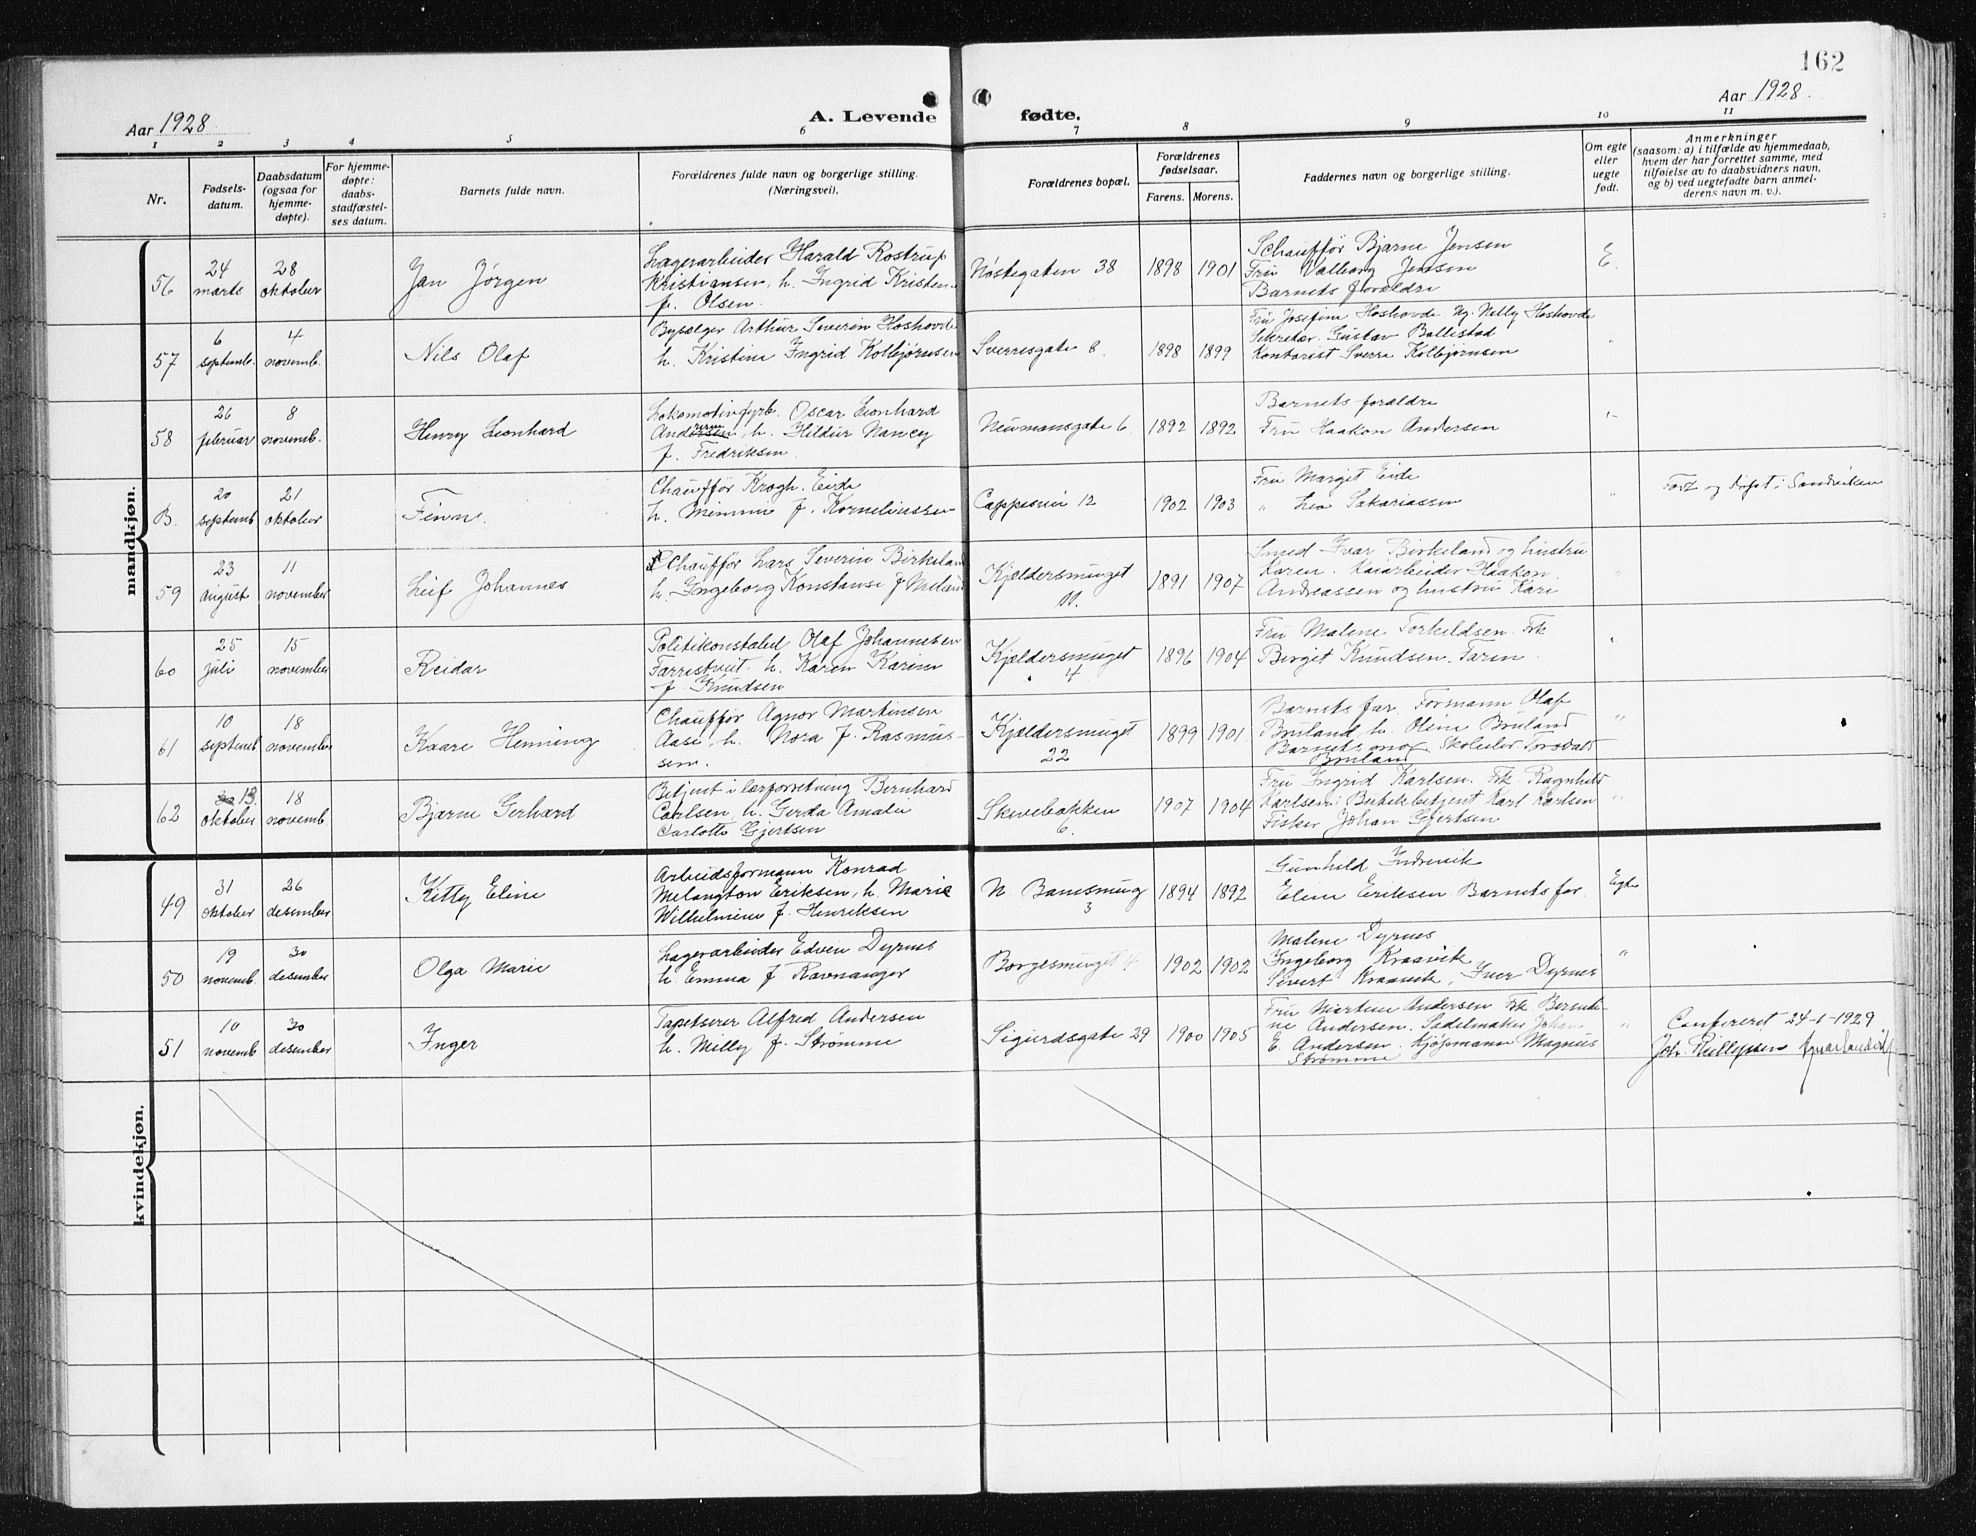 162
Aar 1928
A. Levende fødte.
Aar 1928.
1 2 3 4 5 6 7 8 9 10 11
Nr.
Fødsels-
datum.
Daabsdatum
(ogsaa for
hjemme-
døpte).
For hjemme-
døpte:
daabs-
stadfæstel-
ses datum.
Barnets fulde navn.
Forældrenes fulde navn og borgerlige stilling.
(Næringsvei).
Forældrenes bopæl.
Forældrenes
fødselsaar.
Farens. Morens.
Faddernes navn og borgerlige stilling.
Om egte
eller
uegte
født.
Anmerkninger
(saasom: a) i tilfælde av hjemmedaab,
hvem der har forrettet samme, med
tilføielse av to daabsvidners navn,
og b) ved uegtefødte barn anmel-
derens navn m. v.).
mandkjøn.
56
24
marts
28
oktober
Jan Jörgen
Lagerarbeider Harald Rostrup
Kristiansen, h. Ingrid Kristen
f. Olsen.
Nöstegaten 38
1898 1901
Schauffør Bjarne Jensen
Fru Valborg Jensen
Barnets forældre
E.
57
6
septemb.
4
novemb.
Nils Olaf
Bypælger Arthur Severin Hoshovde
h. Kristine Ingrid Kolbjørnsen
Sverresgate 8.
1898 1899
Fru Josefine Hoshovde. Ug. Nelly Hoshovde
Sekretær Gustav Ballestad
Kontorist Sverre Kolbjørnsen
"
58
26
februar
8
novemb.
Henry Leonhard
Lokomotivfyrb. Oscar Leonhard
Andersen, h. Hildur Nancy
f. Fredriksen.
Neumansgate 6.
1892 1892
Barnets forældre
Fru Haakon Andersen
"
B.
20
septemb
21
oktober
Finn.
Chauffør Krogh. Eide
h. Memmu f. Korneliussen
Cappesvei 12
1902 1903
Fru Margit Eide
" Lea Sakariassen
"
Født og døpt i Sandviken
59
23
august
11
november
Leif Johannes
Chauffør Lars Severin Birkeland
h. Ingeborg Konstanse f.
Kjældersmuget
1891 1907
Smed Ivar Birkeland og hustru
Karen. Kaiarbeider Haakon.
Andreassen og hustru Kari
"
60
25
juli
15
november
Reidar
Politikonstabel Olaf Johannesen
Farrestveit h. Karen Karine
f. Knudsen
Kjældersmuget
4
1896 1904
Fru Malene Torkildsen. Frk
Birgit Knudsen. Faren
"
61
10
septemb
18
november
Kaare Henning
Chauffør Agnor Martinsen
Aase, h. Nora f. Rasmus-
sen.
Kjældersmuget
22
1899 1901.
Barnets far. Formann Olaf
Bruland h. Oline Bruland
Barnets mor Skoleelev Torvald
Bruland
"
62
13.
oktober
18
novemb.
Bjarne Gerhard
Betjent i lærforretning Bernhard
Carlsen, h. Gerda Amalie
Carlotte Gjertsen
Skivebakken
6.
1907 1904
Fru Ingrid Karlsen. Frk. Ragnhild
Karlsen. Butikkbetjent Karl Karlsen
Fisker Johan Gjertsen
"
kvindekjøn.
49
31
oktober
26
desember
Kitty Eline
Arbeidsformann Konrad
Melangton Eriksen, h. Marie
Wilhelmine f. Henriksen
N. Banesmug
3
1894 1892
Gunhild Indrevik
Eline Eriksen. Barnets far.
Egte
50
19
novemb.
30
desember
Olga Marie
Lagerarbeider Edvin Dyrnes
h. Emma f. Ravnanger
Borgesmuget 4
1902 1902
Malene Dyrnes
Ingeborg Kraavik
Sivert Kraavik, Iver Dyrnes
"
51
10
novemb
30
desember
Inger
Tapetserer Alfred Andersen
h. Milly f. Strømme
Sigurdsgate 29
1900 1905
Fru Martine Andersen Frk Bernti-
ne Andersen. Sadelmaker Johan
E. Andersen. Kjøpmann Magnus
Strømme
"
Confereret 24-1-1929
Joh. Phillipsen